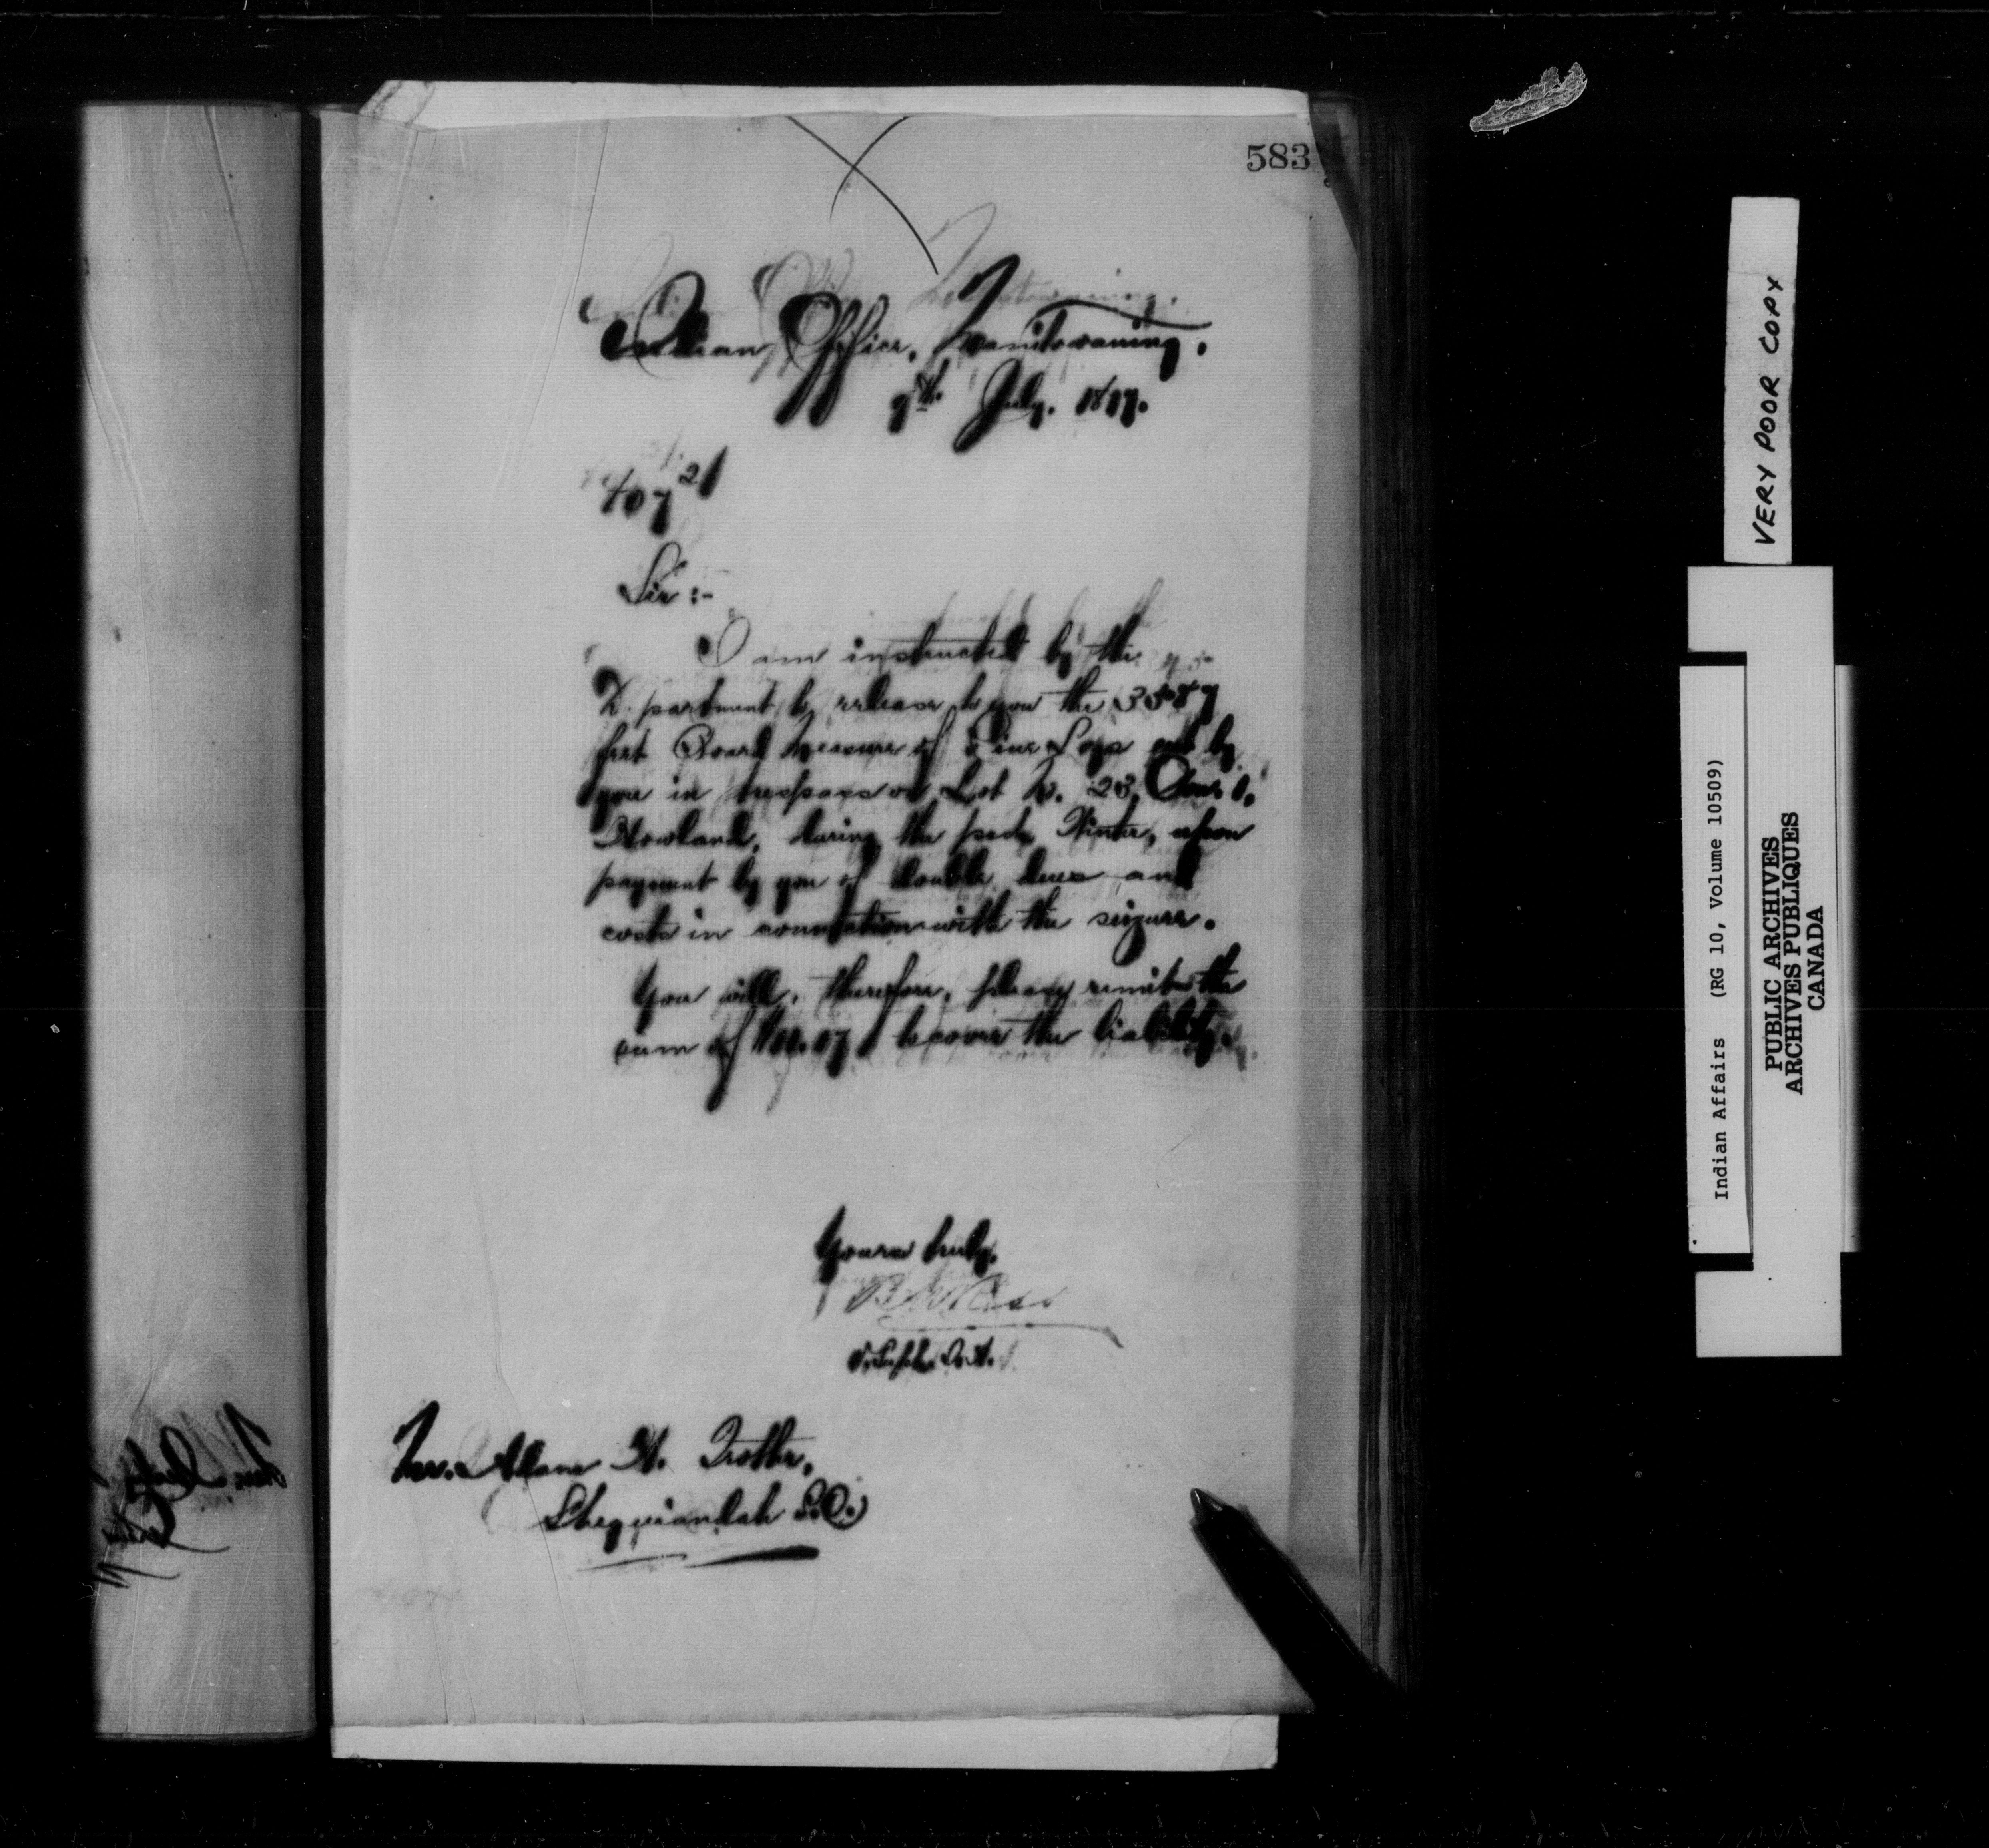 583
Indian Office, Manitowaning,
9th July, 1897.
Sir :-
I am instructed by the
Department to release to you the
feet Board Measure of Pine Logs cut by
you in trespass on Lot No. 23, Con. 1,
Howland, during the past Winter, upon
payment by you of double dues and
costs in connection with the seizure.
You will, therefore, please remit the
sum of to cover the liability.
Yours truly,
B W Ross
Supt. I.A.
Mr. Adam H. Trotter,
Sheguiandah P.O.
VERY POOR COPY
Indian Affairs (RG 10, Volume 10509)
PUBLIC ARCHIVES
ARCHIVES PUBLIQUES
CANADA